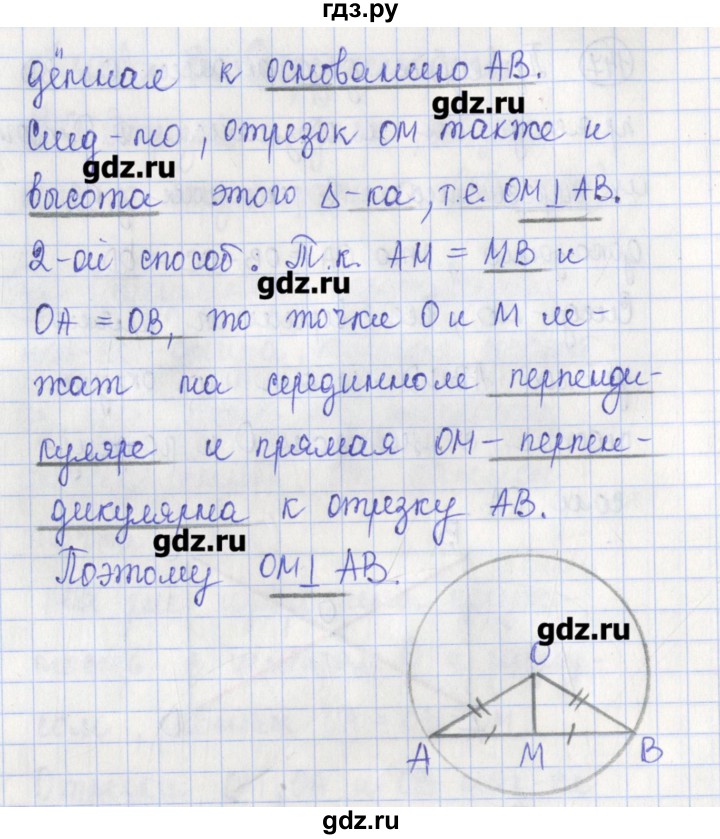 гдз.ру
дённая к основанию AB.
gdz.ru
След-но, отрезок OM также и
gdz.ru
высота этого Δ-ка, т.е. OM⊥AB.
2-ой способ. Т.к. AM = MB и
gdz.ru
OA = OB, то точки O и M ле-
жат на серединном перпенди-
куляре и прямая OM - перпен-
дикулярна к отрезку AB.
gdz.ru
Поэтому OM⊥AB.
gdz.ru
O
A M B
gdz.ru